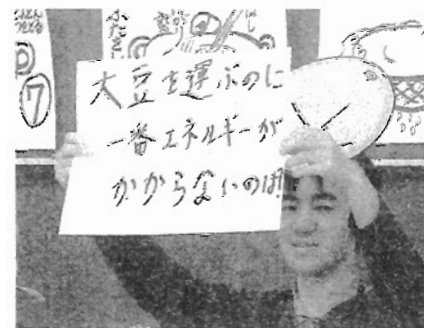 大豆を運ぶのに
一番エネルギーが
かからないのは!
⑦